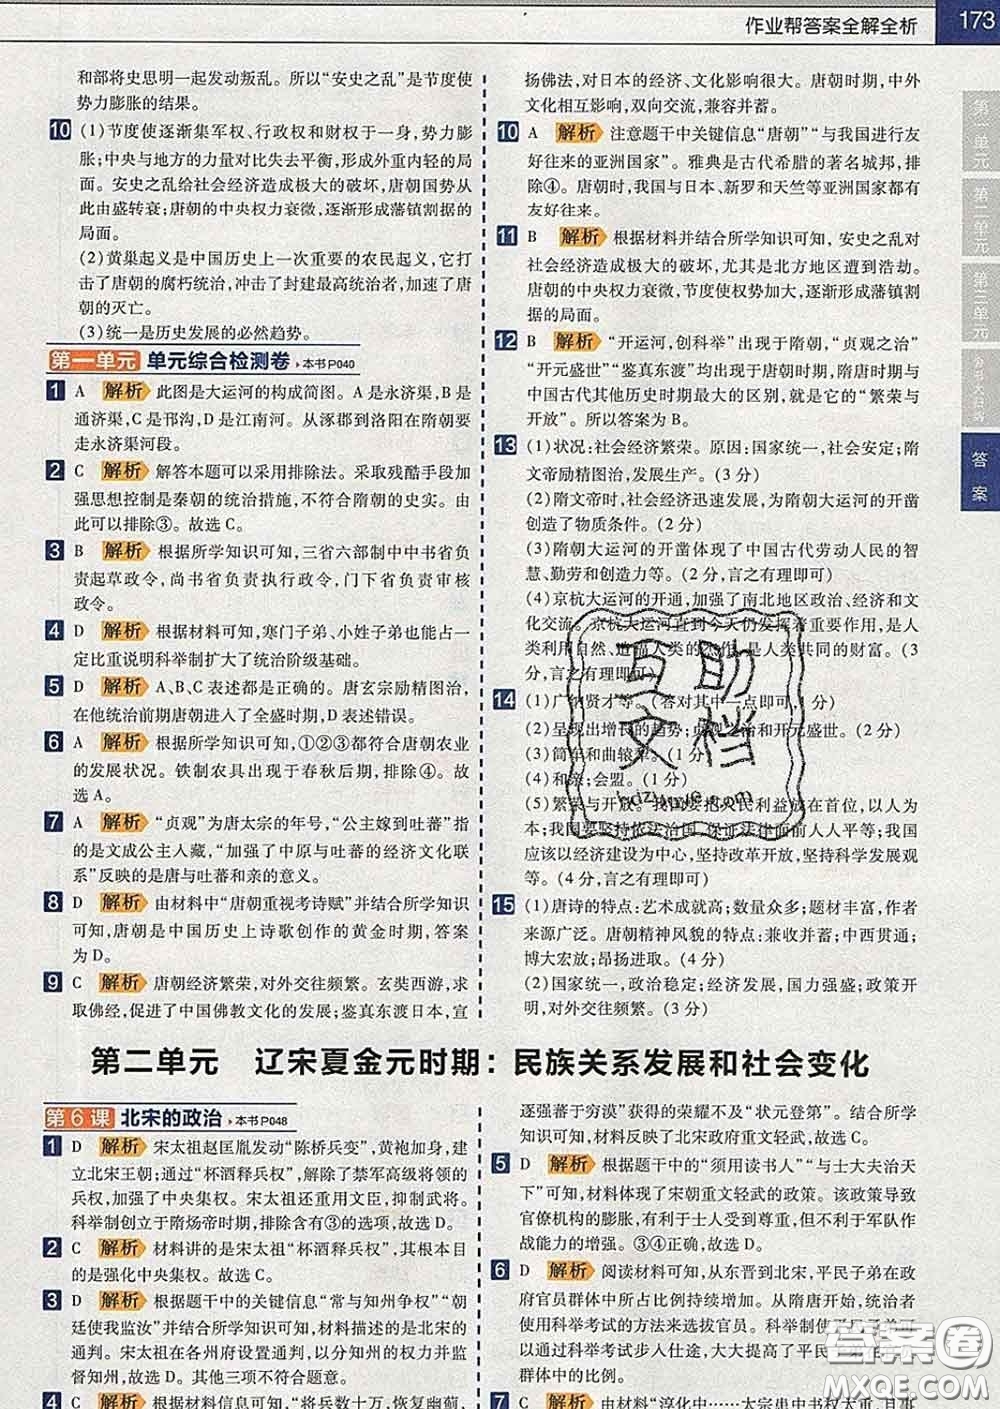 作业帮答案全解全析
173
和部将史思明一起发动叛乱。所以“安史之乱”是节度使
势力膨胀的结果。
10 (1)节度使逐渐集军权、行政权和财权于一身，势力膨
胀；中央与地方的力量对比失去平衡，形成外重内轻的局
面。安史之乱给社会经济造成极大的破坏，唐朝国势从
此由盛转衰；唐朝的中央权力衰微，逐渐形成藩镇割据的
局面。
(2)黄巢起义是中国历史上一次重大的农民起义，它打
击了唐朝的腐朽统治，冲击了封建最高统治者，加速了唐
朝的灭亡。
(3)统一是历史发展的必然趋势。
第一单元 单元综合检测卷 ▸本书P040
1 A 解析 此图是大运河的构成简图。A是永济渠，B是
通济渠，C是邗沟，D是江南河。从涿郡到洛阳在隋朝要
走永济渠河段。
2 C 解析 解答本题可以采用排除法。采取残酷手段加
强思想控制是秦朝的统治措施，不符合隋朝的史实。由
此可以排除③。故选C。
3 B 解析 根据所学知识可知，三省六部制中中书省负
责起草政令，尚书省负责执行政令，门下省负责审核
政令。
4 D 解析 根据材料可知，寒门子弟、小姓子弟也能占一
定比重说明科举制扩大了统治阶级基础。
5 D 解析 A、B、C表述都是正确的。唐玄宗励精图治，
在他统治前期唐朝进入了全盛时期，D表述错误。
6 A 解析 根据所学知识可知，①②③都符合唐朝农业
的发展状况。铁制农具出现于春秋后期，排除④。故
选A。
7 A 解析 “贞观”为唐太宗的年号，“公主嫁到吐蕃”指
的是文成公主入藏，“加强了中原与吐蕃的经济文化联
系”反映的是唐与吐蕃和亲的意义。
8 D 解析 由材料中“唐朝重视考诗赋”并结合所学知识
可知，唐朝是中国历史上诗歌创作的黄金时期，答案
为D。
9 C 解析 唐朝经济繁荣，对外交往频繁。玄奘西游，求
取佛经，促进了中国佛教文化的发展；鉴真东渡日本，宣
扬佛法，对日本的经济、文化影响很大。唐朝时期，中外
文化相互影响，双向交流，兼容并蓄。
10 A 解析 注意题干中关键信息“唐朝”“与我国进行友
好往来的亚洲国家”。雅典是古代希腊的著名城邦，排
除④。唐朝时，我国与日本、新罗和天竺等亚洲国家都有
友好往来。
11 B 解析 根据材料并结合所学知识可知，安史之乱对
社会经济造成极大的破坏，尤其是北方地区遭到浩劫。
唐朝的中央权力衰微，节度使权势加大，逐渐形成藩镇割
据的局面。
12 B 解析 “开运河，创科举”出现于隋朝，“贞观之治”
“开元盛世”“鉴真东渡”均出现于唐朝时期，隋唐时期与
中国古代其他历史时期最大的区别，就是它的“繁荣与
开放”。所以答案为B。
13 (1)状况：社会经济繁荣。原因：国家统一，社会安定；隋
文帝励精图治，发展生产。(3分)
(2)隋文帝时，社会经济迅速发展，为隋朝大运河的开凿
创造了物质条件。(2分)
(3)隋朝大运河的开凿体现了中国古代劳动人民的智
慧、勤劳和创造力等。(2分，言之有理即可)
(4)京杭大运河的开通，加强了南北地区政治、经济和文
化交流。京杭大运河直到今天仍发挥着重要作用，是人
类利用自然、造福人类的杰作，是人类共同的财富。(3
分，言之有理即可)
14 (1)广纳贤才等。(答对其中一点即可，分)
(2)呈现出增长的趋势；贞观之治和开元盛世。(2分)
(3)筒车和曲辕犁。(1分)
(4)和亲；会盟。(1分)
(5)繁荣与开放。我国要把人民利益放在首位，以人为
本；我国要坚持依法治国，保证法律面前人人平等；我国
应该以经济建设为中心，坚持改革开放，坚持科学发展观
等。(4分，言之有理即可)
15 (1)唐诗的特点：艺术成就高；数量众多；题材丰富，作者
来源广泛。唐朝精神风貌的特点：兼收并蓄；中西贯通；
博大宏放；昂扬进取。(4分)
(2)国家统一，政治稳定；经济发展，国力强盛；政策开
明，对外交往频繁。(3分)
第二单元 辽宋夏金元时期：民族关系发展和社会变化
第6课 北宋的政治 ▸本书P048
1 D 解析 宋太祖赵匡胤发动“陈桥兵变”，黄袍加身，建
立北宋王朝；通过“杯酒释兵权”，解除了禁军高级将领的
兵权，加强了中央集权。宋太祖还重用文臣，抑制武将。
科举制创立于隋炀帝时期，排除含有③的选项，故选D。
2 C 解析 材料讲的是宋太祖“杯酒释兵权”，其根本目
的是强化中央集权。故选C。
3 D 解析 根据题干中的关键信息“常与知州争权”“朝
廷使我监汝”并结合所学知识可知，材料描述的是北宋的
通判。宋太祖在各州府设置通判，以分知州的权力并监
督知州，故选D。其他三项不符合题意。
4 C 解析 根据题干关键信息“将兵数十万，恢复幽蓟，
逐强蕃于穷漠”获得的荣耀不及“状元登第”。结合所学
知识可知，材料反映了北宋政府重文轻武，故选C。
5 D 解析 根据题干中的“须用读书人”“与士大夫治天
下”可知，材料体现了宋朝重文轻武的政策。该政策导致
官僚机构的膨胀，有利于士人受到尊重，但不利于军队作
战能力的增强。③④正确，故选D。
6 D 解析 阅读材料可知，从东晋到北宋，平民子弟在政府
官员群体中所占比例持续增加。从隋唐开始，统治者
使用科举考试的方法来选拔官员。科举制使
通过科举考试步入仕途，大大提高了平民子
群体中的比例。
7 C 解析 由材料“淳化中……文章大重，且事
第一单元
第二单元
第三单元
答案
互助文档
hdzhuwe.com
答案圈
MXQE.COM